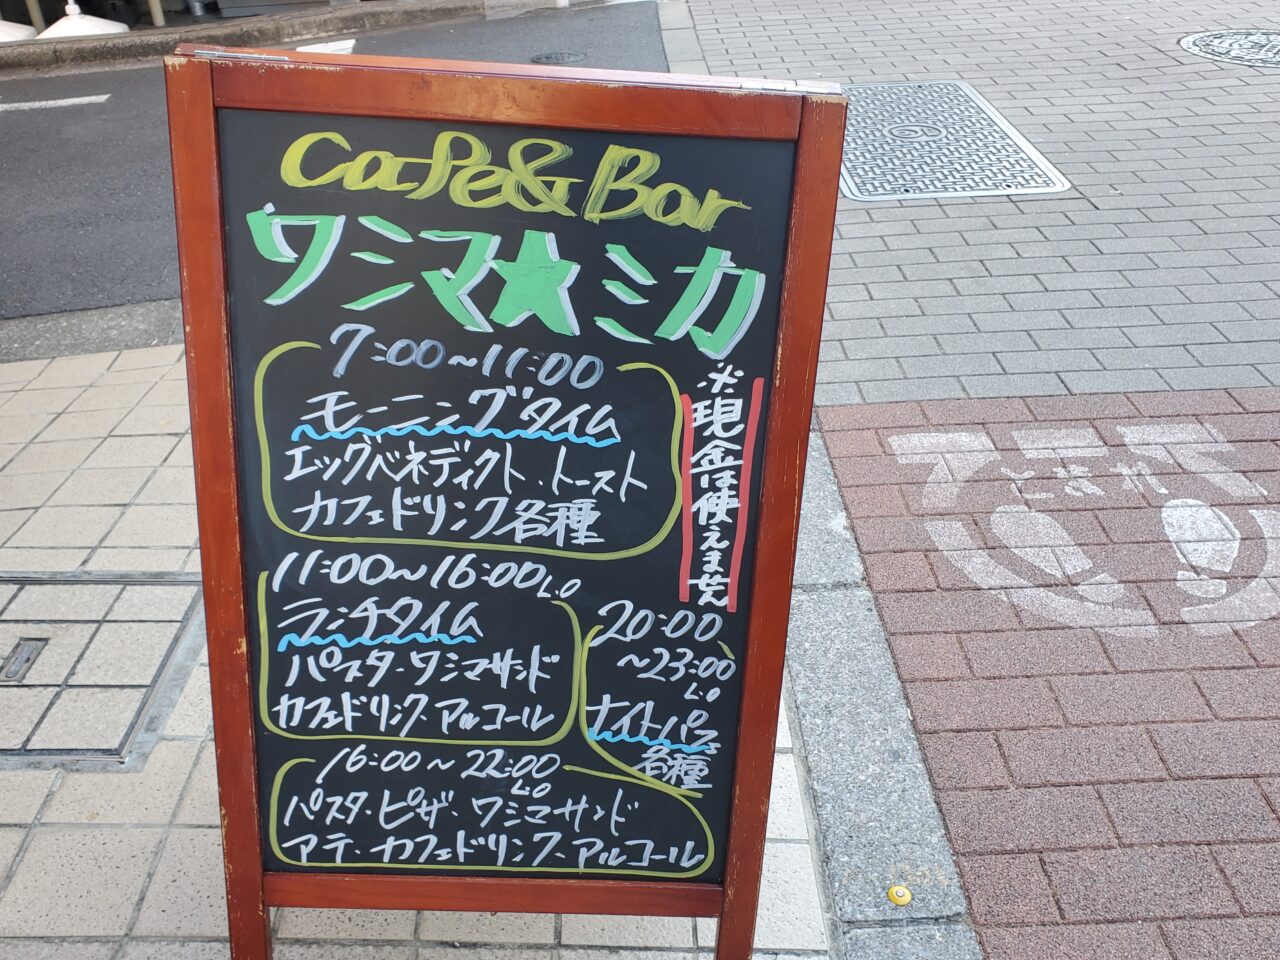 Cafe&Bar
ワシマ★ミカ
7:00~11:00
モーニングタイム
エッグベネディクト.トースト
カフェドリンク各種
※現金は使えません
11:00~16:00L.O
ランチタイム
パスタ.ワシマサンド
カフェドリンク.アルコール
20:00
~23:00
L.O
ナイトパフェ
各種
16:00~22:00
L.O
パスタ.ピザ.ワシマサンド
アテ.カフェドリンク.アルコール
とまれ